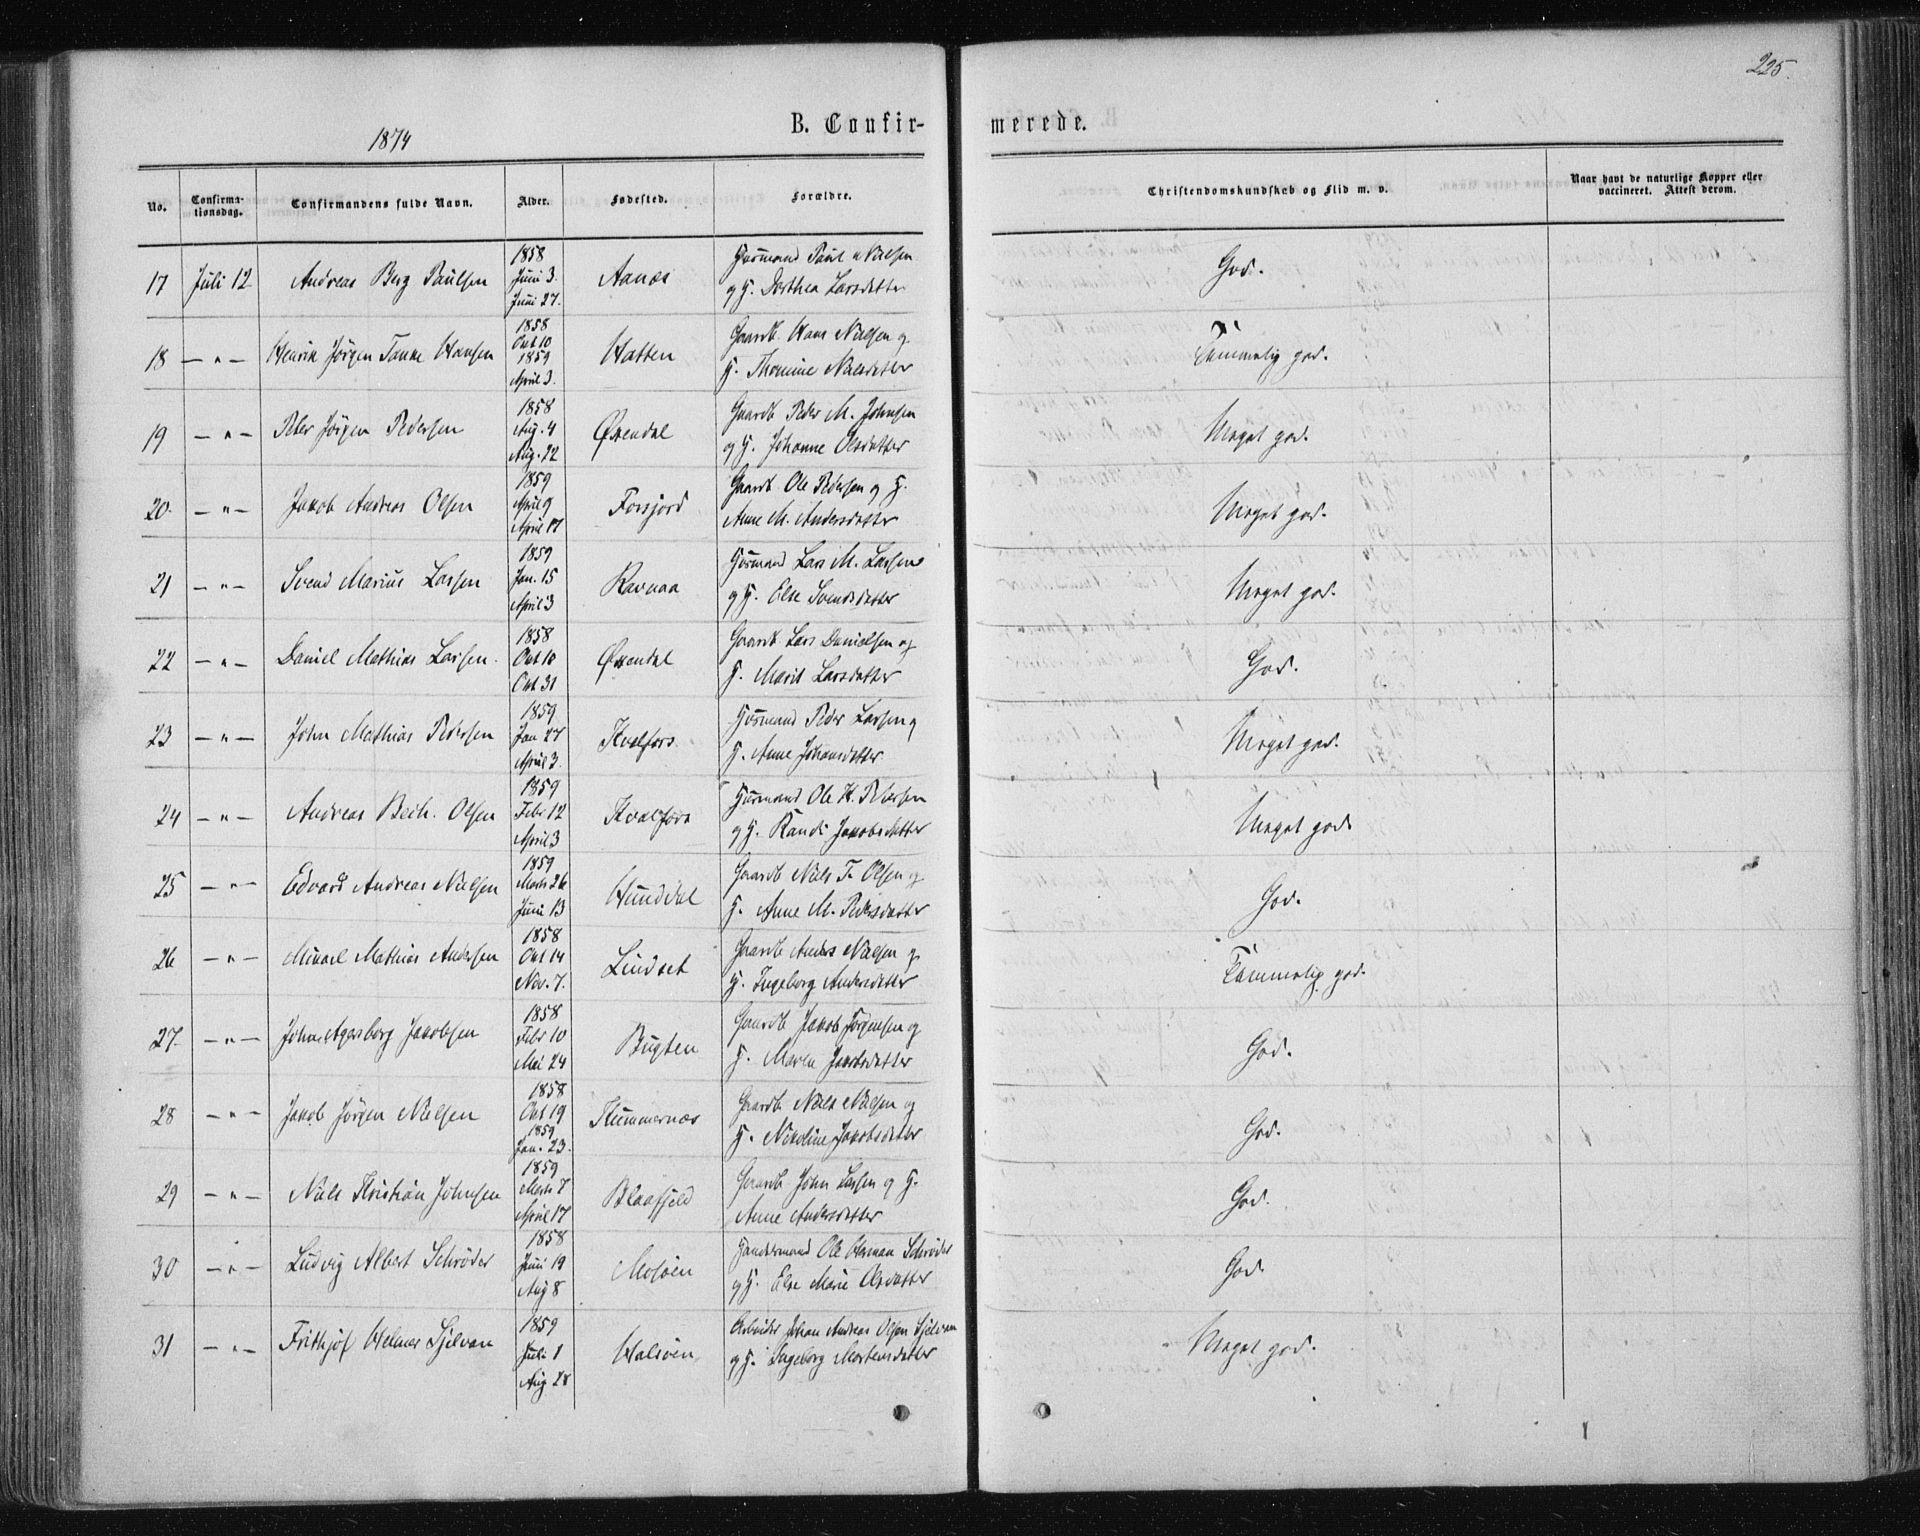 225.
1874
B. Confir-
merede.
No.
Confirma-
tionsdag.
Confirmandens fulde Navn.
Alder.
Fødested.
Forældre.
Christendomskundskab og Flid m. v.
Naar havt de naturlige Kopper eller
vaccineret. Attest derom.
17 Juli 12. Andreas Berg Paulsen 1858 Juni 3. Juni 27. Aanes Huusmand Paul Nielsen og H. Dorthea Larsdatter God.
18 — " — Henrik Jörgen Tanke Hansen 1858 Okt 10 1859 April 3. Hatten Gaardb. Hans Nielsen og H. Thomine Nielsdatter Temmelig god.
19 — " — Peter Jörgen Pedersen 1858 Aug. 4 Aug. 22 Øxendal Gaardb Peder M. Johnsen og H. Johanne Olsdatter Meget god.
20. — " — Jakob Andreas Olsen 1859 April 9 April 17 Forsjord Gaardb. Ole Pedersen og H. Anne M. Andersdatter Meget god.
21 — " — Svend Marius Larsen 1859 Jan. 15 April 3 Ravnaa Huusmand Lars M. Larsen og H. Else Svendsdatter Meget god.
22 — " — Daniel Mathias Larsen. 1858 Okt 10 Okt 31 Øxendal Gaardb. Lars Danielsen og H. Marit Larsdatter God.
23 — " — John Mathias Pedersen 1859 Jan 27 April 3. Kvalfors Huusmand Peder Larsen og H. Anne Johansdatter Meget god.
24 — " — Andreas Bech. Olsen 1859 Febr 12 April 3 Kvalfors Huusmand Ole H. Pedersen og H. Randi Jakobsdatter Meget god.
25 — " — Edvard Andreas Nielsen 1859 Marts 26 Juni 13 Hunddal Gaardb. Niels T. Olsen og H. Anne M. Pedersdatter God.
26 — " — Mikael Mathias Andersen 1858 Okt 14 Nov. 7. Lindset Gaardb Anders Nielsen og H. Ingeborg Andersdatter Temmelig god.
27. — " — John Agersborg Jakobsen 1858 Febr 10 Mai 24 Bugten Gaardb Jakob Jörgensen og H. Maren Jakobsdatter God.
28 — " — Jakob Jörgen Nielsen 1858 Okt 19 1859 Jan. 23. Kummernæs Gaardb. Niels Nielsen og H. Nikoline Jakobsdatter God.
29 — " — Niels Kristian Johnsen 1859 Marts 7 April 17 Blaafjeld Gaardb John Larsen og H. Anne Andersdatter God.
30 — " — Ludvig Albert Schrøder 1858 Juni 19 Aug 8 Mosøen Handelsmand Ole Herman Schrøder og H. Else Marie Olsdatter God.
31 — " — Frithjof Helmer Sjelvan 1859 Juli 1 Aug 28 Halsøen Arbeider Johan Andreas Olsen Sjelvan og H. Ingeborg Mortensdatter Meget god.